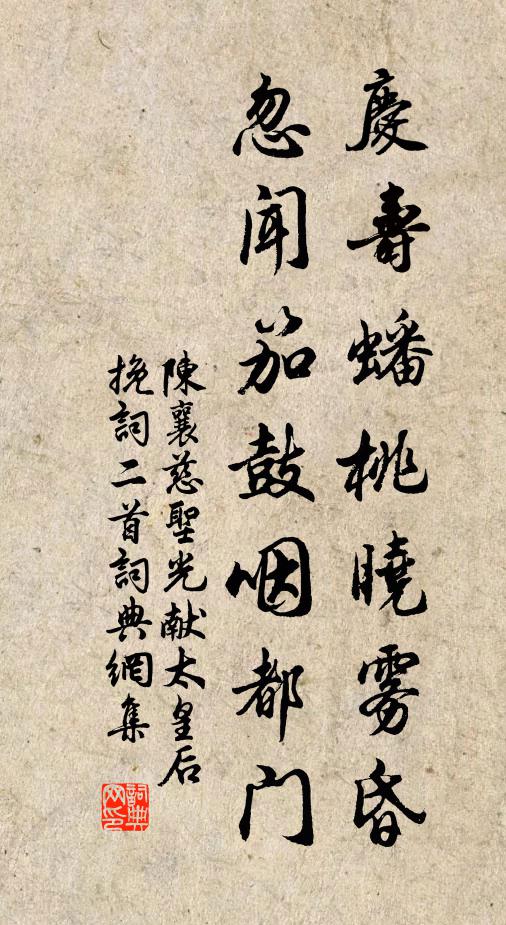 慶壽蟠桃曉雾昏
忽聞笳鼓咽都门
陳襄慈聖光献太皇后
挽詞二首詞典網集
詞典网印